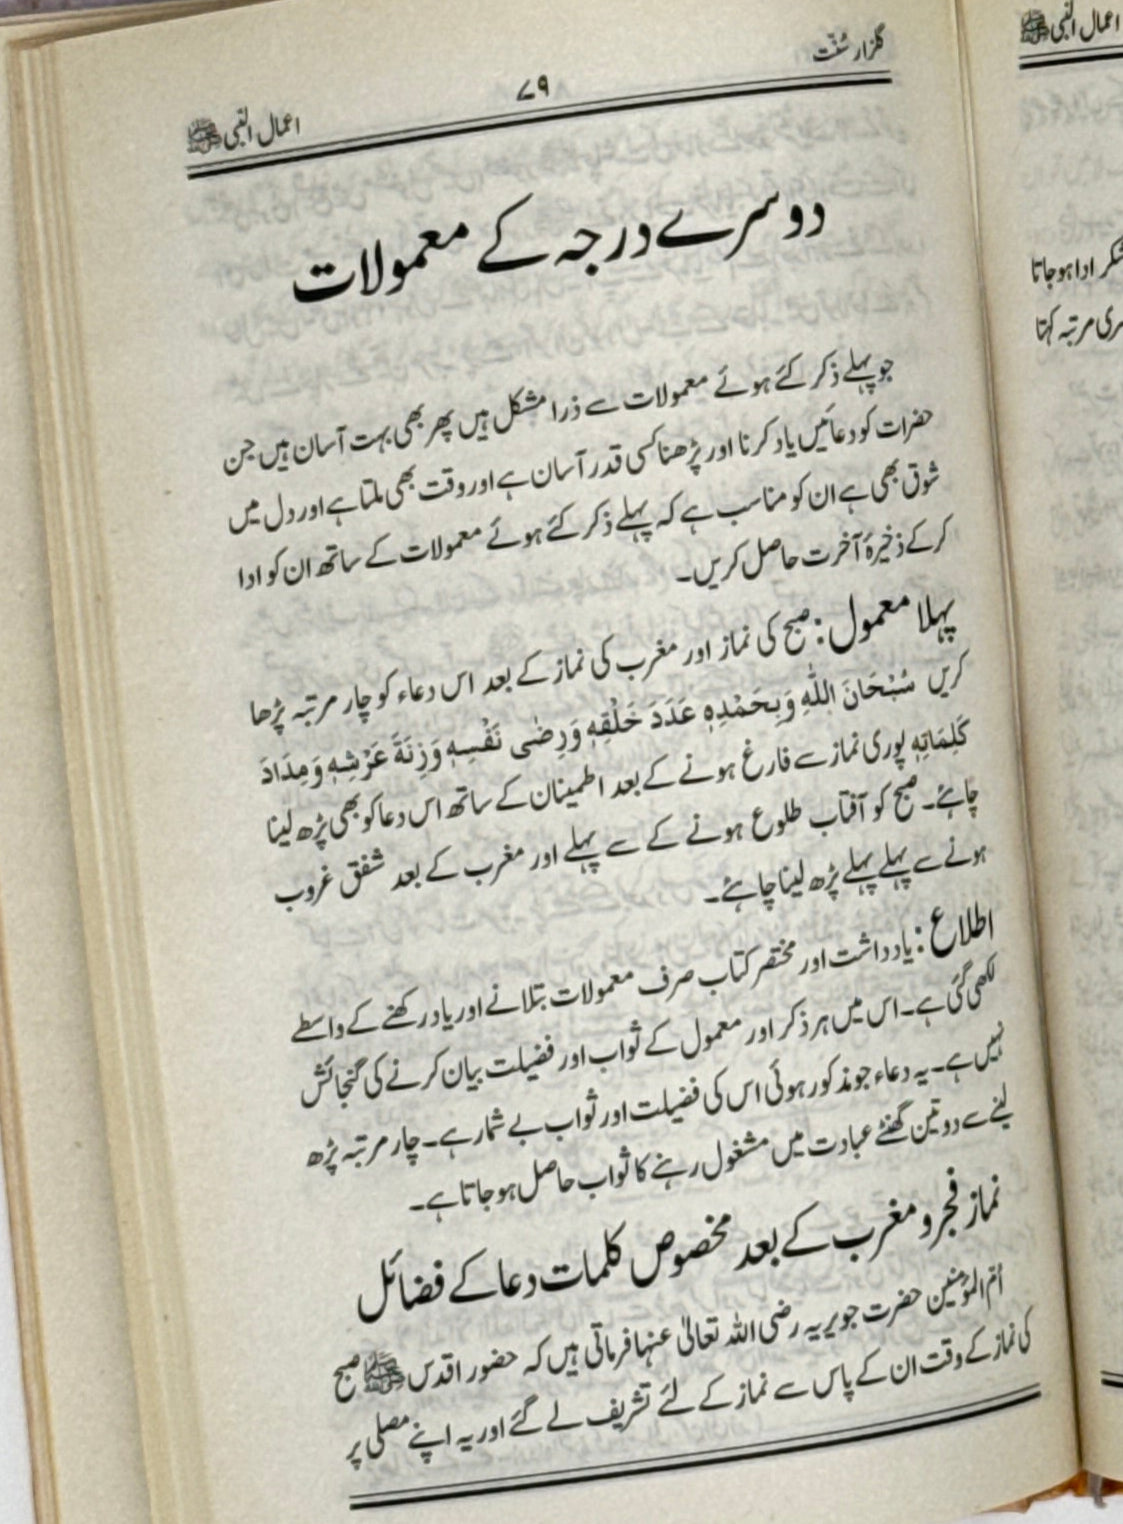 گلزار سُنّت
۷۹
اعمال النبی ﷺ
دوسرے درجہ کے معمولات
جو پہلے ذکر کئے ہوئے معمولات سے ذرا مشکل ہیں پھر بھی بہت آسان ہیں جن
حضرات کو دعائیں یاد کرنا اور پڑھنا کسی قدر آسان ہے اور وقت بھی ملتا ہے اور دل میں
شوق بھی ہے ان کو مناسب ہے کہ پہلے ذکر کئے ہوئے معمولات کے ساتھ ان کو ادا
کر کے ذخیرۂ آخرت حاصل کریں۔
پہلا معمول: صبح کی نماز اور مغرب کی نماز کے بعد اس دعاء کو چار مرتبہ پڑھا
کریں سُبْحَانَ اللّٰهِ وَبِحَمْدِهٖ عَدَدَ خَلْقِهٖ وَرِضٰی نَفْسِهٖ وَزِنَةَ عَرْشِهٖ وَمِدَادَ
كَلِمَاتِهٖ پوری نماز سے فارغ ہونے کے بعد اطمینان کے ساتھ اس دعا کو بھی پڑھ لینا
چاہئے۔ صبح کو آفتاب طلوع ہونے کے سے پہلے اور مغرب کے بعد شفق غروب
ہونے سے پہلے پہلے پڑھ لینا چاہئے۔
اطلاع: یادداشت اور مختصر کتاب صرف معمولات بتلانے اور یاد رکھنے کے واسطے
لکھی گئی ہے۔ اس میں ہر ذکر اور معمول کے ثواب اور فضیلت بیان کرنے کی گنجائش
نہیں ہے۔ یہ دعاء جو مذکور ہوئی اس کی فضیلت اور ثواب بے شمار ہے۔ چار مرتبہ پڑھ
لینے سے دو تین گھنٹے عبادت میں مشغول رہنے کا ثواب حاصل ہو جاتا ہے۔
نماز فجر و مغرب کے بعد مخصوص کلمات دعا کے فضائل
اُمّ المؤمنین حضرت جویریہ رضی اللہ تعالیٰ عنہا فرماتی ہیں کہ حضور اقدس ﷺ صبح
کی نماز کے وقت ان کے پاس سے نماز کے لئے تشریف لے گئے اور یہ اپنے مصلی پر
اعمال النبی ﷺ
شکر ادا ہو جاتا
مرتبہ کہتا